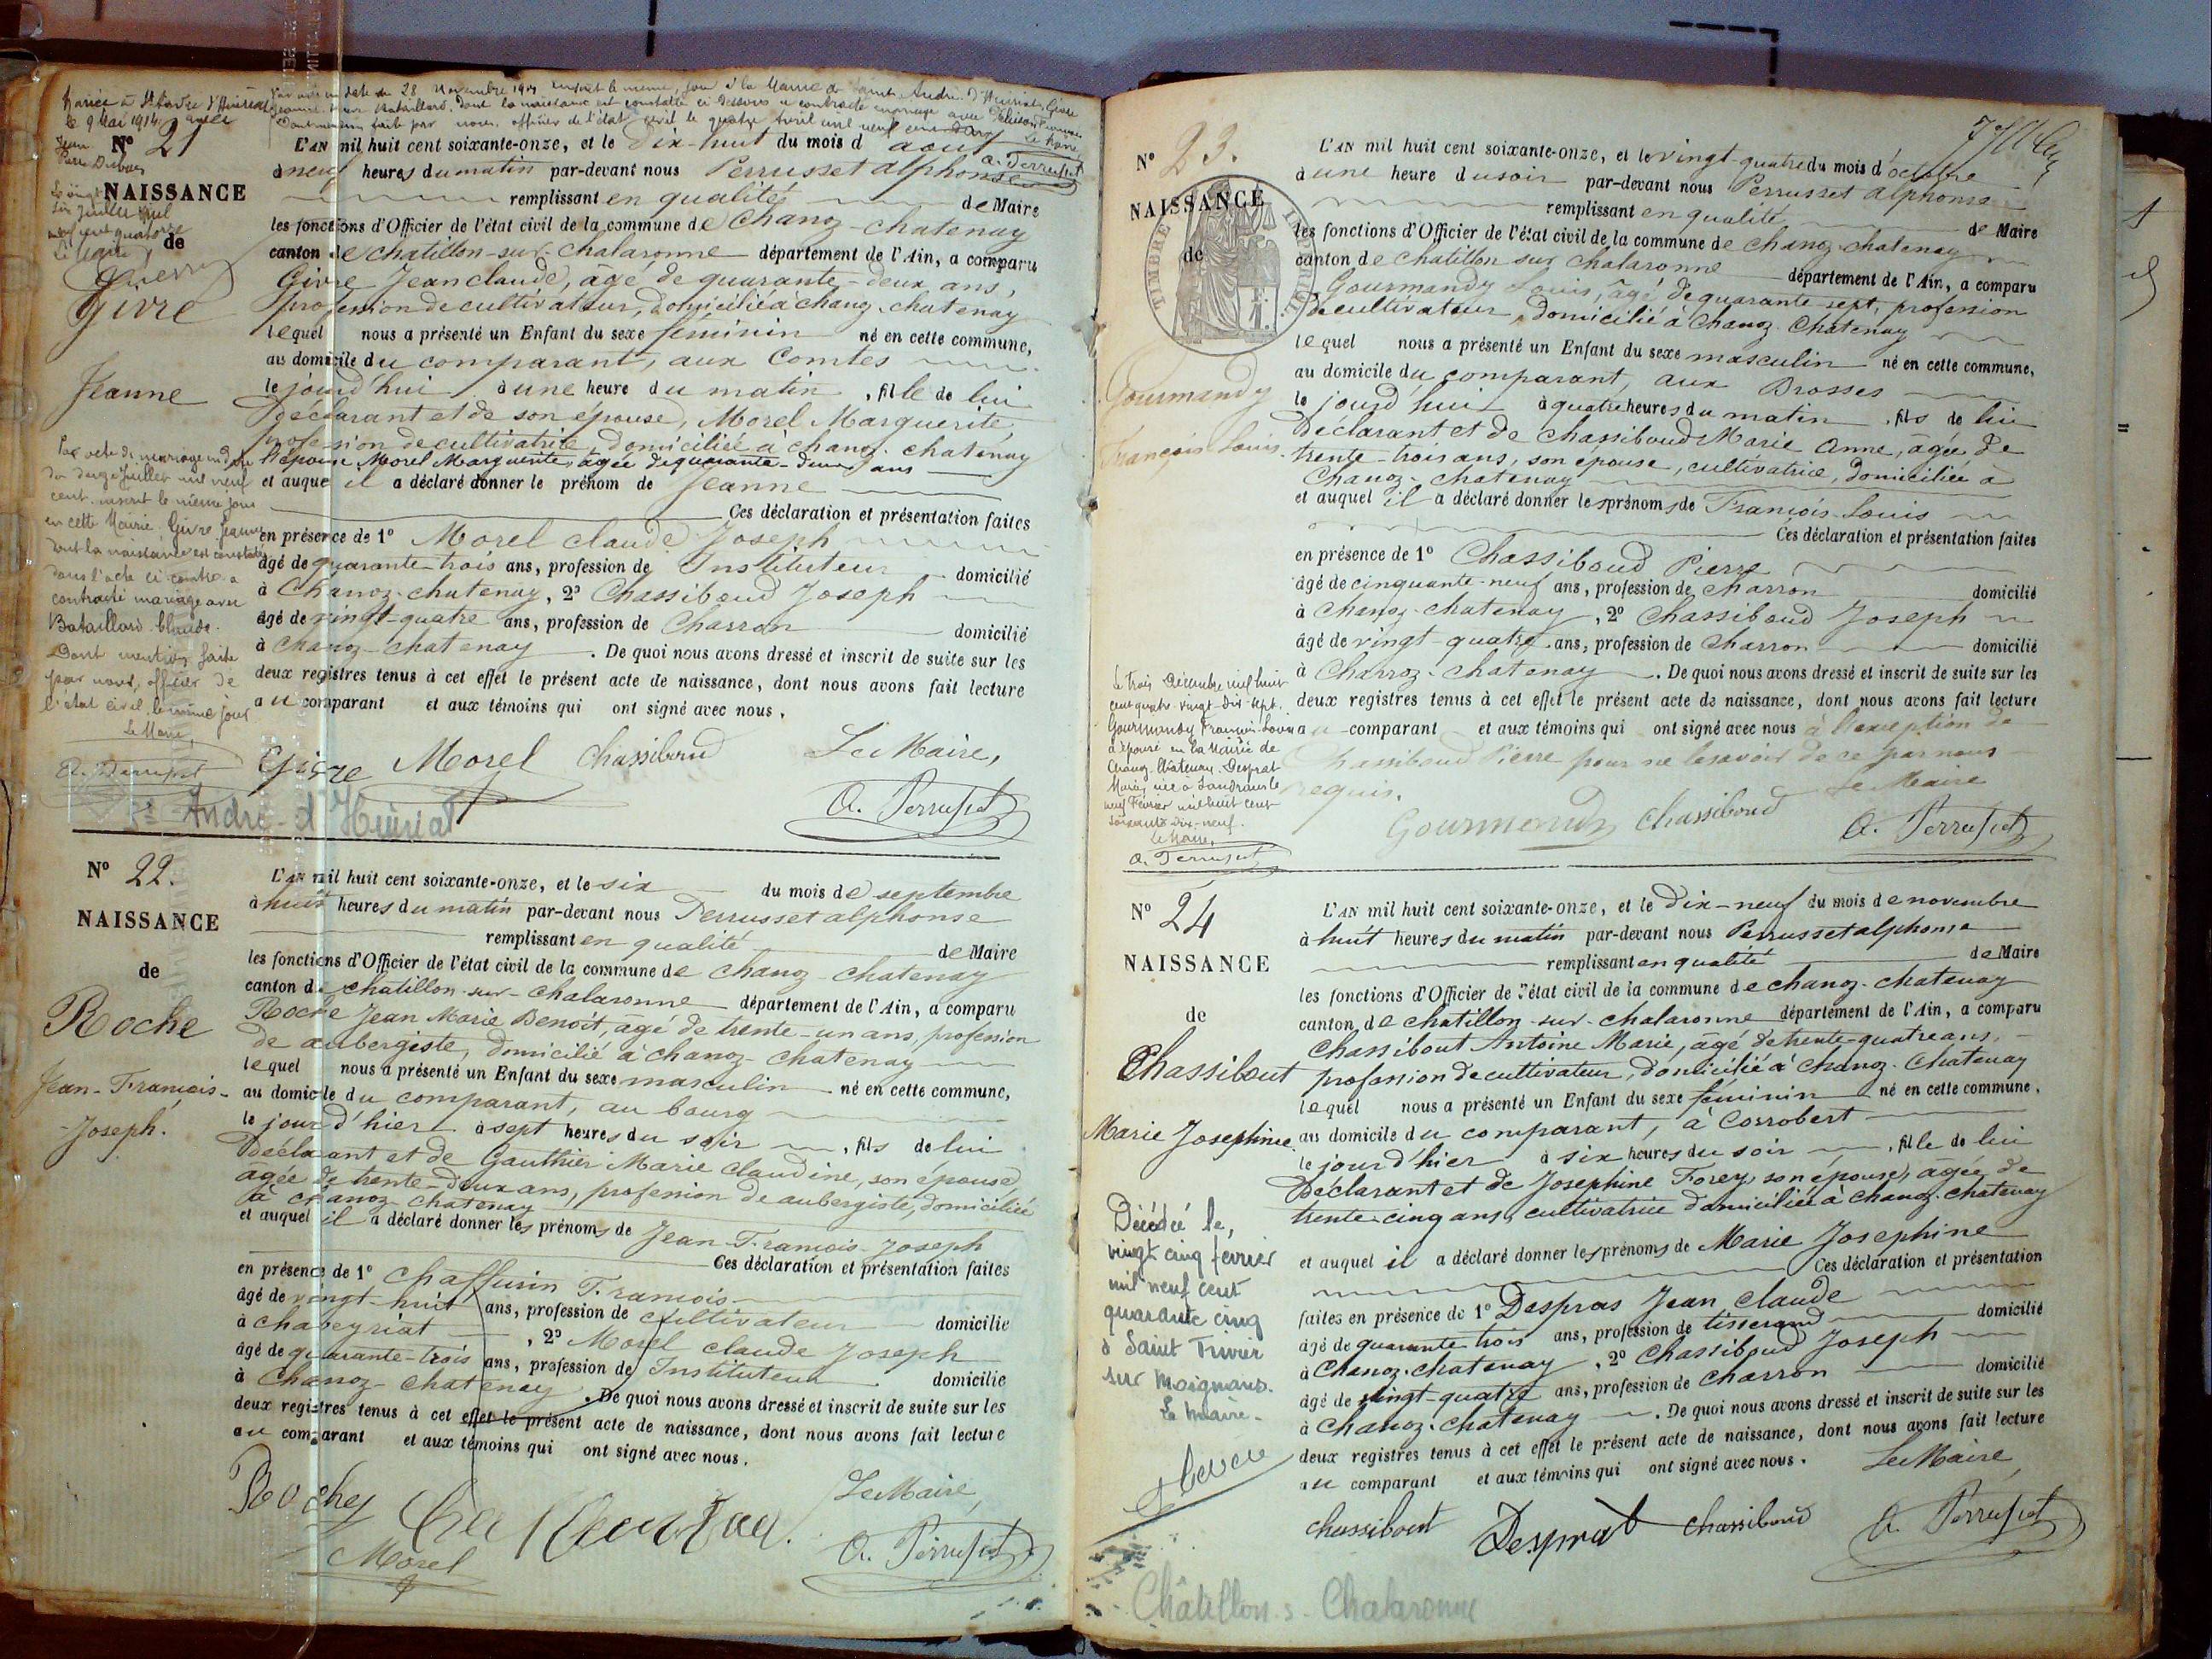 Mariée à St André d'Huiriat
le 9 Mai 1914 avec
Jean
Pierre Dubois
Le vingt
six Juillet mil
neuf cent quatorze
Le Maire
date du 28 Novembre 1904 inscrit le même jour à la Mairie de Saint André d'Huiriat, Givre
Jeanne, veuve Bataillard, dont la naissance est constatée ci-dessous a contracté mariage avec
Dont mention faite par nous, officier de l'état civil le quatre avril mil neuf cent
Le Maire
A. Perrusset
N° 21
NAISSANCE
de
Givre
Jeanne
L'AN mil huit cent soixante-onze, et le Dix-huit du mois d'aout
à neuf heures du matin par-devant nous Perrusset alphonse
remplissant en qualité de Maire
les fonctions d'Officier de l'état civil de la commune de Chanoz-chatenay
canton de chatillon-sur-chalaronne département de l'Ain, a comparu
Givre Jean claude, âgé de quarante-deux ans,
profession de cultivateur, domicilié à chanoz-chatenay
lequel nous a présenté un Enfant du sexe féminin né en cette commune,
au domicile du comparant, aux Comtes
le jourd'hui à une heure du matin, fille de lui
déclarant et de son épouse, Morel Marguerite,
profession de cultivatrice domiciliée à chanoz-chatenay
l'épouse Morel Marguerite, âgée de quarante-deux ans
et auquel il a déclaré donner le prénom de Jeanne
Ces déclaration et présentation faites
en présence de 1° Morel claude Joseph
âgé de quarante-trois ans, profession de Instituteur domicilié
à Chanoz-chatenay, 2° Chassiboud Joseph
âgé de vingt-quatre ans, profession de Charron domicilié
à Chanoz-chatenay. De quoi nous avons dressé et inscrit de suite sur les
deux registres tenus à cet effet le présent acte de naissance, dont nous avons fait lecture
au comparant et aux témoins qui ont signé avec nous.
Par acte de mariage en date
du douze Juillet mil neuf
cent inscrit le même jour
en cette Mairie. Givre Jeanne
dont la naissance est constatée
dans l'acte ci-contre a
contracté mariage avec
Bataillard Claude.
Dont mention faite
par nous, officier de
l'état civil le même jour
Le Maire,
A. Perrusset
Givre Morel Chassiboud Le Maire,
A. Perrusset
St André-d'Huiriat
N° 22.
NAISSANCE
de
Roche
Jean-François-
Joseph.
L'AN mil huit cent soixante-onze, et le six du mois de septembre
à huit heures du matin par-devant nous Perrusset alphonse
remplissant en qualité de Maire
les fonctions d'Officier de l'état civil de la commune de chanoz-chatenay
canton de chatillon-sur-chalaronne département de l'Ain, a comparu
Roche Jean Marie Benoit, âgé de trente-un ans, profession
de aubergiste, domicilié à chanoz-chatenay
lequel nous a présenté un Enfant du sexe masculin né en cette commune,
au domicile du comparant, au bourg
le jour d'hier à sept heures du soir, fils de lui
Déclarant et de Gauthier Marie claudine, son épouse
âgée de trente-deux ans, profession de aubergiste, domiciliée
à chanoz chatenay
et auquel il a déclaré donner les prénoms de Jean-François-Joseph
Ces déclaration et présentation faites
en présence de 1° Chaffurin François
âgé de vingt-huit ans, profession de cultivateur domicilié
à chaveyriat, 2° Morel claude Joseph
âgé de quarante-trois ans, profession de Instituteur domicilié
à Chanoz-chatenay. De quoi nous avons dressé et inscrit de suite sur les
deux registres tenus à cet effet le présent acte de naissance, dont nous avons fait lecture
au comparant et aux témoins qui ont signé avec nous.
Roche Le Maire,
Morel A. Perrusset
N° 23.
NAISSANCE
de
TIMBRE IMPÉRIAL
Gourmandy
François Louis.
L'AN mil huit cent soixante-onze, et le vingt-quatre du mois d'octobre
à une heure du soir par-devant nous Perrusset alphonse
remplissant en qualité de Maire
les fonctions d'Officier de l'état civil de la commune de Chanoz-chatenay
canton de chatillon sur chalaronne département de l'Ain, a comparu
Gourmandy Louis, âgé de quarante-sept, profession
de cultivateur, domicilié à Chanoz-Chatenay
lequel nous a présenté un Enfant du sexe masculin né en cette commune,
au domicile du comparant, aux Brosses
le jourd'hui à quatre heures du matin, fils de lui
déclarant et de Chassiboud Marie Anne, âgée de
trente-trois ans, son épouse, cultivatrice, domiciliée à
Chanoz-chatenay
et auquel il a déclaré donner les prénoms de François-Louis
Ces déclaration et présentation faites
en présence de 1° Chassiboud Pierre
âgé de cinquante-neuf ans, profession de charron domicilié
à chanoz-chatenay, 2° Chassiboud Joseph
âgé de vingt-quatre ans, profession de charron domicilié
à Chanoz-chatenay. De quoi nous avons dressé et inscrit de suite sur les
deux registres tenus à cet effet le présent acte de naissance, dont nous avons fait lecture
au comparant et aux témoins qui ont signé avec nous à l'exception de
Chassiboud Pierre pour ne le savoir de ce par nous
requis.
Le trois Décembre mil huit
cent quatre-vingt-dix-sept.
Gourmandy François-Louis
a épousé en la Mairie de
Chanoz-Chatenay. Desprat
Marie, née à Sandrans le
neuf Février mil huit cent
soixante-dix-neuf.
Le Maire,
A. Perrusset
Le Maire
Gourmandy Chassiboud A. Perrusset
N° 24
NAISSANCE
de
Chassibout
Marie Josephine
L'AN mil huit cent soixante-onze, et le Dix-neuf du mois de novembre
à huit heures du matin par-devant nous Perrusset alphonse
remplissant en qualité de Maire
les fonctions d'Officier de l'état civil de la commune de chanoz-chatenay
canton de chatillon-sur-chalaronne département de l'Ain, a comparu
Chassibout Antoine Marie, âgé de trente-quatre ans,
profession de cultivateur, domicilié à chanoz-Chatenay
lequel nous a présenté un Enfant du sexe féminin né en cette commune,
au domicile du comparant, à Corrobert
le jour d'hier à six heures du soir, fille de lui
Déclarant et de Josephine Forey, son épouse, âgée de
trente-cinq ans, cultivatrice domiciliée à chanoz-chatenay
et auquel il a déclaré donner les prénoms de Marie Josephine
Ces déclaration et présentation
faites en présence de 1° Despras Jean claude
âgé de quarante trois ans, profession de tisserand domicilié
à Chanoz-chatenay, 2° Chassiboud Joseph
âgé de vingt-quatre ans, profession de Charron domicilié
à Chanoz-chatenay. De quoi nous avons dressé et inscrit de suite sur les
deux registres tenus à cet effet le présent acte de naissance, dont nous avons fait lecture
au comparant et aux témoins qui ont signé avec nous.
Décédée le,
vingt cinq février
mil neuf cent
quarante cinq
à Saint Trivier
sur Moignans.
Le Maire.
Le Maire,
Chassibout Desprat Chassiboud A. Perrusset
Châtillon-s-Chalaronne